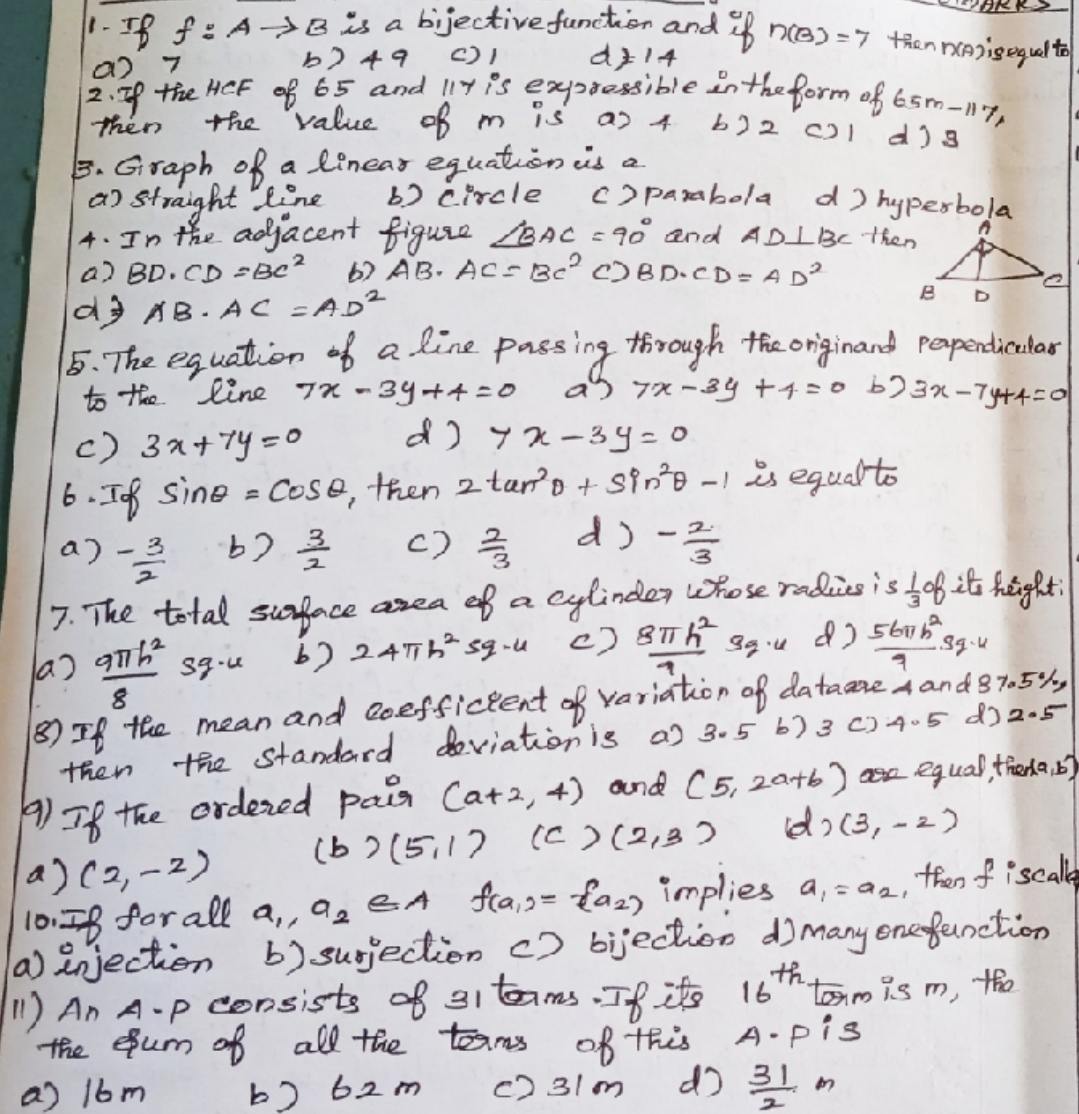 MARKS
1. If f : A → B is a bijective function and if n(B) = 7 then n(A) is equal to
a) 7 b) 49 c) 1 d) 14
2. If the HCF of 65 and 117 is expressible in the form of 65m - 117,
then the value of m is a) 4 b) 2 c) 1 d) 3
3. Graph of a linear equation is a
a) straight line b) circle c) parabola d) hyperbola
4. In the adjacent figure ∠BAC = 90° and AD⊥BC then
a) BD. CD = BC² b) AB. AC = BC² c) BD. CD = AD²
d) AB. AC = AD²
A
B D C
5. The equation of a line passing through the origin and perpendicular
to the line 7x - 3y + 4 = 0 a) 7x - 3y + 4 = 0 b) 3x - 7y + 4 = 0
c) 3x + 7y = 0 d) 7x - 3y = 0
6. If sinθ = cosθ, then 2 tan²θ + sin²θ - 1 is equal to
a) -3/2 b) 3/2 c) 2/3 d) -2/3
7. The total surface area of a cylinder whose radius is 1/3 of its height.
a) 9πh²/8 sq.u b) 24πh² sq.u c) 8πh²/9 sq.u d) 56πh²/9 sq.u
8) If the mean and coefficient of variation of data are 4 and 87.5%,
then the standard deviation is a) 3.5 b) 3 c) 4.5 d) 2.5
9) If the ordered pair (a+2, 4) and (5, 2a+b) are equal, then (a,b)
a) (2, -2) (b) (5,1) (c) (2,3) (d) (3, -2)
10. If for all a₁, a₂ ∈ A f(a₁) = f(a₂) implies a₁ = a₂, then f is calle
a) injection b) surjection c) bijection d) many one function
11) An A.P consists of 31 terms. If its 16th term is m, the
the sum of all the terms of this A.P is
a) 16m b) 62 m c) 31 m d) 31/2 m